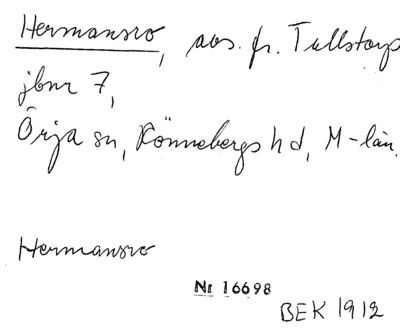 Hermansro, avs. fr. Tullstorp
jbnr 7,
Örja sn, Rönnebergs hd, M-län.
Hermansro
Nr 16698
BEK 1912